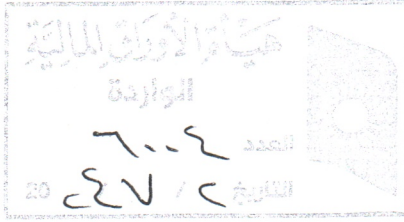 هيئة الأوراق المالية
الواردة
العدد ٦٠٠٤
التاريخ ٢ / ٧ / 20٢٤